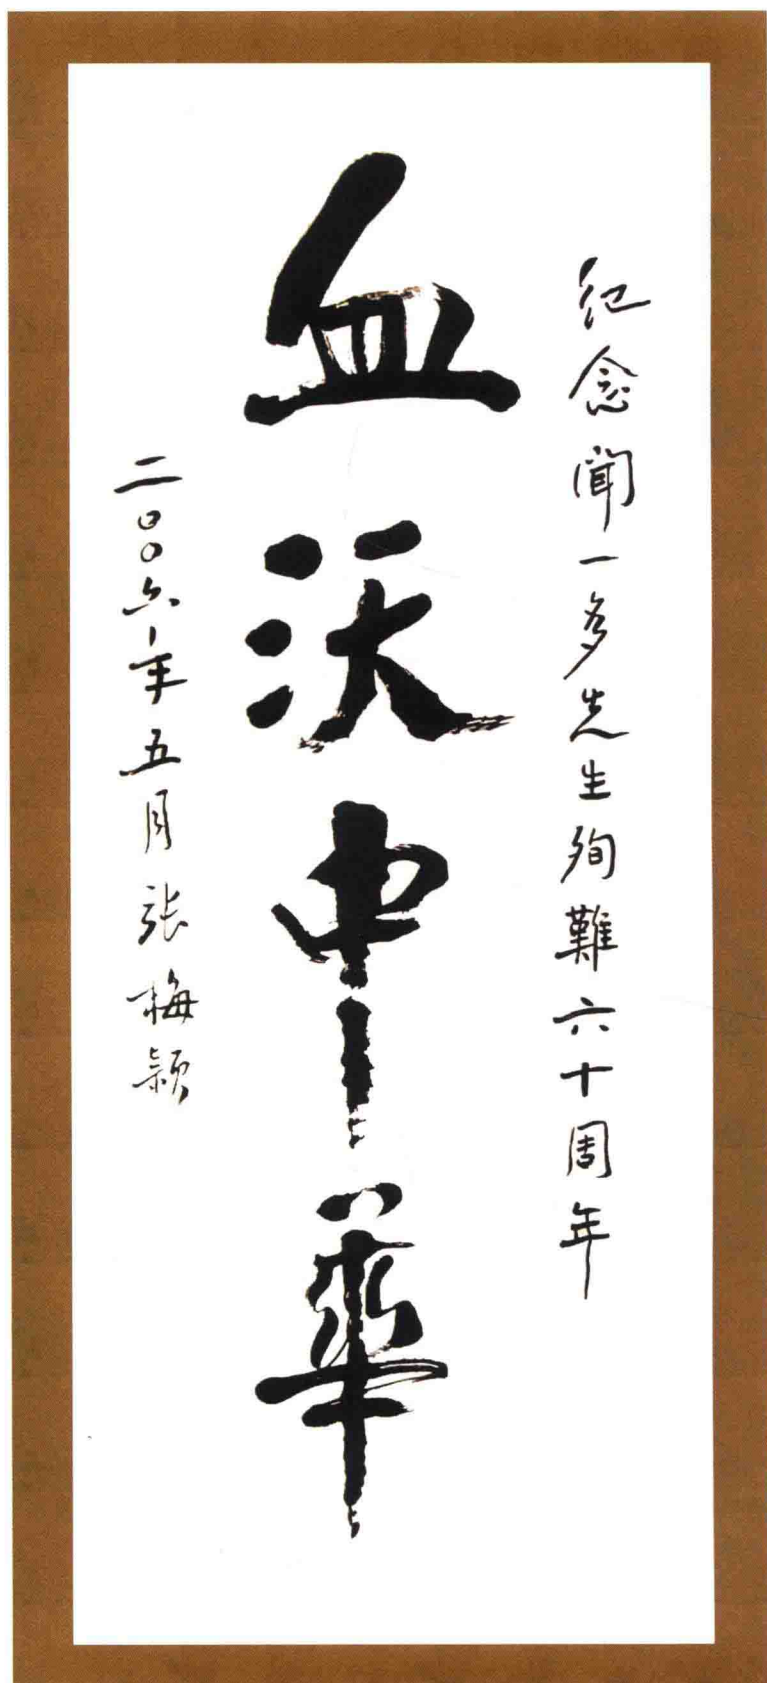 纪念聞一多先生殉難六十周年
血沃中華
二〇〇六年五月 张梅颖